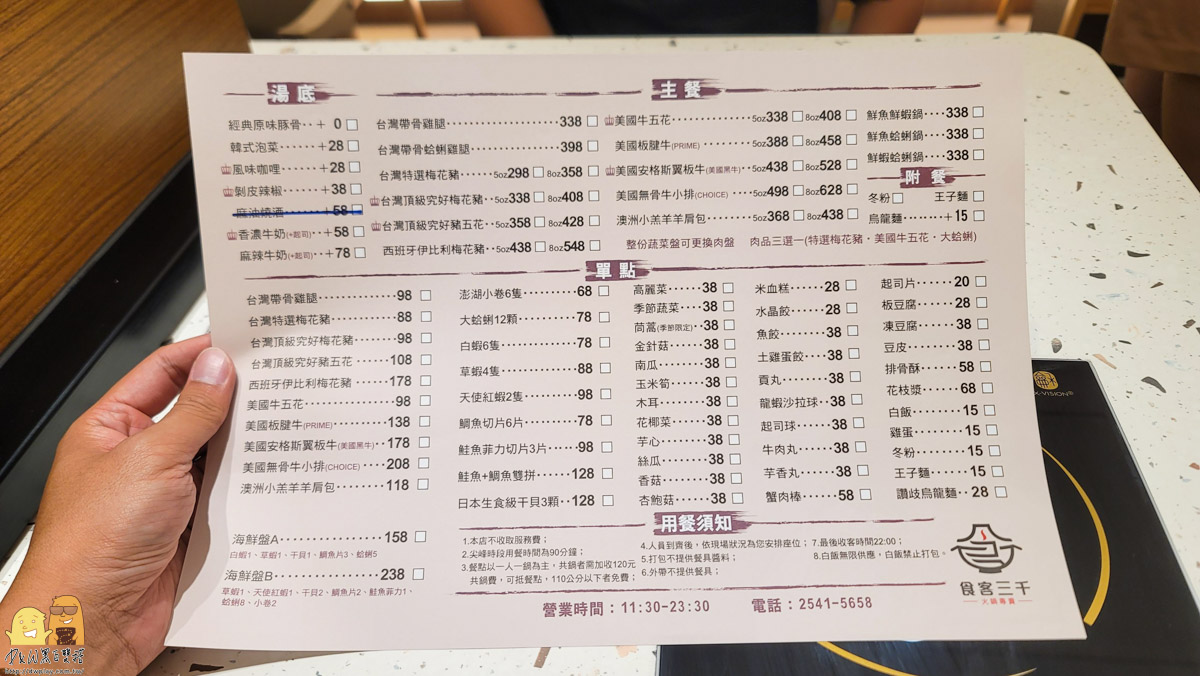 湯底
經典原味豚骨‥＋ 0
韓式泡菜‥‥‥＋28
風味咖哩‥‥‥＋28
剝皮辣椒‥‥‥＋38
麻油燒酒‥‥‥＋58
香濃牛奶(+起司)‥＋58
麻辣牛奶(+起司)‥＋78
主餐
台灣帶骨雞腿‥‥‥338
台灣帶骨蛤蜊雞腿‥‥‥398
台灣特選梅花豬‥‥5oz298 8oz358
台灣頂級究好梅花豬‥5oz338 8oz408
台灣頂級究好豬五花‥5oz358 8oz428
西班牙伊比利梅花豬‥5oz438 8oz548
美國牛五花‥‥‥5oz338 8oz408
美國板腱牛(PRIME)‥‥‥5oz388 8oz438
美國安格斯翼板牛(美國黑牛)‥5oz458 8oz528
美國無骨牛小排(CHOICE)‥‥5oz498 8oz628
澳洲小羔羊羊肩包‥‥‥5oz368 8oz438
整份蔬菜盤可更換肉盤 肉品三選一(特選梅花豬・美國牛五花・大蛤蜊)
鮮魚鮮蝦鍋‥‥338
鮮魚蛤蜊鍋‥‥338
鮮蝦蛤蜊鍋‥‥338
附餐
冬粉 王子麵
烏龍麵‥‥‥＋15
單點
台灣帶骨雞腿‥‥‥98
台灣特選梅花豬‥‥‥88
台灣頂級究好梅花豬‥‥‥98
台灣頂級究好豬五花‥‥‥108
西班牙伊比利梅花豬‥‥‥178
美國牛五花‥‥‥98
美國板腱牛(PRIME)‥‥‥138
美國安格斯翼板牛(美國黑牛)‥178
美國無骨牛小排(CHOICE)‥‥208
澳洲小羔羊羊肩包‥‥‥118
海鮮盤A‥‥‥158
白蝦1、草蝦1、干貝1、鯛魚片3、蛤蜊5
海鮮盤B‥‥‥238
草蝦1、天使紅蝦1、干貝2、鯛魚片2、鮭魚菲力1、
蛤蜊8、小卷2
澎湖小卷6隻‥‥‥68
大蛤蜊12顆‥‥‥78
白蝦6隻‥‥‥78
草蝦4隻‥‥‥88
天使紅蝦2隻‥‥‥98
鯛魚切片6片‥‥‥78
鮭魚菲力切片3片‥‥98
鮭魚+鯛魚雙拼‥‥‥128
日本生食級干貝3顆‥128
高麗菜‥‥‥38
季節蔬菜‥‥38
茼蒿(季節限定)‥38
金針菇‥‥‥38
南瓜‥‥‥38
玉米筍‥‥‥38
木耳‥‥‥38
花椰菜‥‥‥38
芋心‥‥‥38
絲瓜‥‥‥38
香菇‥‥‥38
杏鮑菇‥‥‥38
米血糕‥‥‥28
水晶餃‥‥‥28
魚餃‥‥‥38
土雞蛋餃‥‥38
貢丸‥‥‥38
龍蝦沙拉球‥38
起司球‥‥‥38
牛肉丸‥‥‥38
芋香丸‥‥‥38
蟹肉棒‥‥‥58
起司片‥‥‥20
板豆腐‥‥‥28
凍豆腐‥‥‥38
豆皮‥‥‥38
排骨酥‥‥‥58
花枝漿‥‥‥68
白飯‥‥‥15
雞蛋‥‥‥15
冬粉‥‥‥15
王子麵‥‥‥15
讚岐烏龍麵‥28
用餐須知
1.本店不收取服務費；
2.尖峰時段用餐時間為90分鐘；
3.餐點以一人一鍋為主，共鍋者需加收120元
共鍋費，可抵餐點，110公分以下者免費；
4.人員到齊後，依現場狀況為您安排座位；
5.打包不提供餐具醬料；
6.外帶不提供餐具；
7.最後收客時間22:00；
8.白飯無限供應，白飯禁止打包。
營業時間：11:30-23:30 電話：2541-5658
食客三千
火鍋專賣